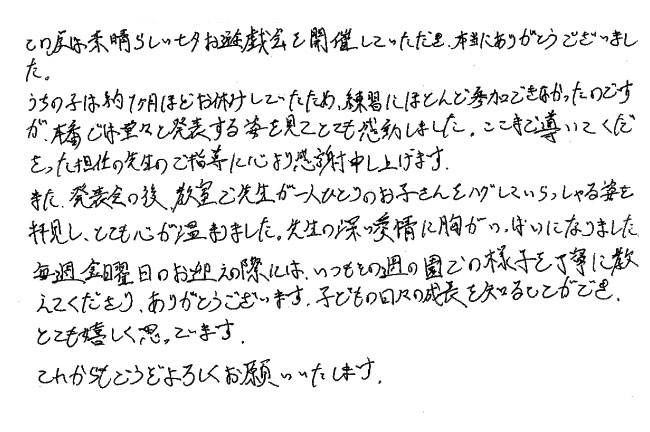 この度は素晴らしい七夕お遊戯会を開催していただき、本当にありがとうございまし
た。
うちの子は約1ヶ月ほどお休みしていたため、練習にほとんど参加できなかったのです
が、本番では堂々と発表する姿を見てとても感動しました。ここまで導いてくだ
さった担任の先生のご指導に心より感謝申し上げます。
また、発表会の後、教室で先生が一人ひとりのお子さんをハグしていらっしゃる姿を
拝見し、とても心が温まりました。先生の深い愛情に胸がいっぱいになりました
毎週金曜日のお迎えの際には、いつもその週の園での様子を丁寧に教
えてくださり、ありがとうございます。子どもの日々の成長を知ることができ、
とても嬉しく思っています。
これからもどうぞよろしくお願いいたします。